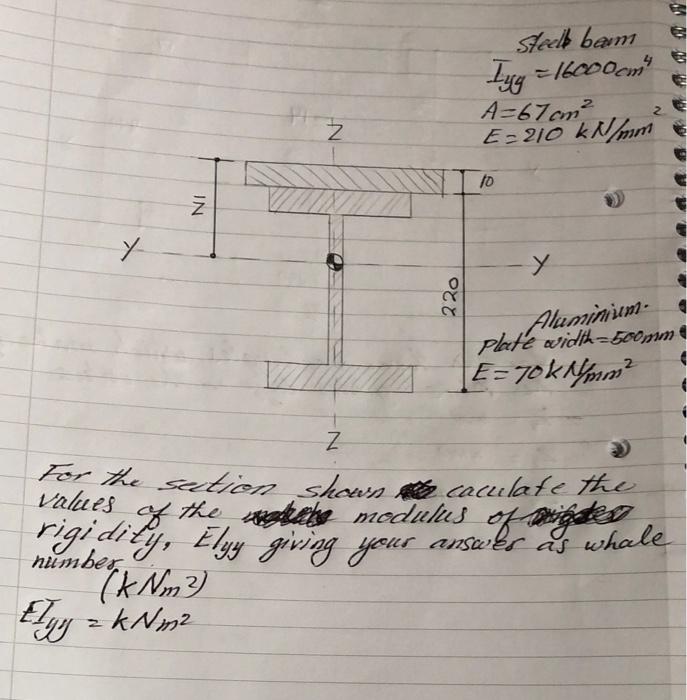 Steel beam
Iyy = 16000cm⁴
A = 67cm²
E = 210 kN/mm²
Z
10
Z̄
Y
Y
220
Aluminium.
Plate width = 500mm
E = 70kN/mm²
Z
For the section shown caculate the
values of the modulus of
rigidity, EIyy giving your answer as whale
number.
(kNm²)
EIyy = kNm²